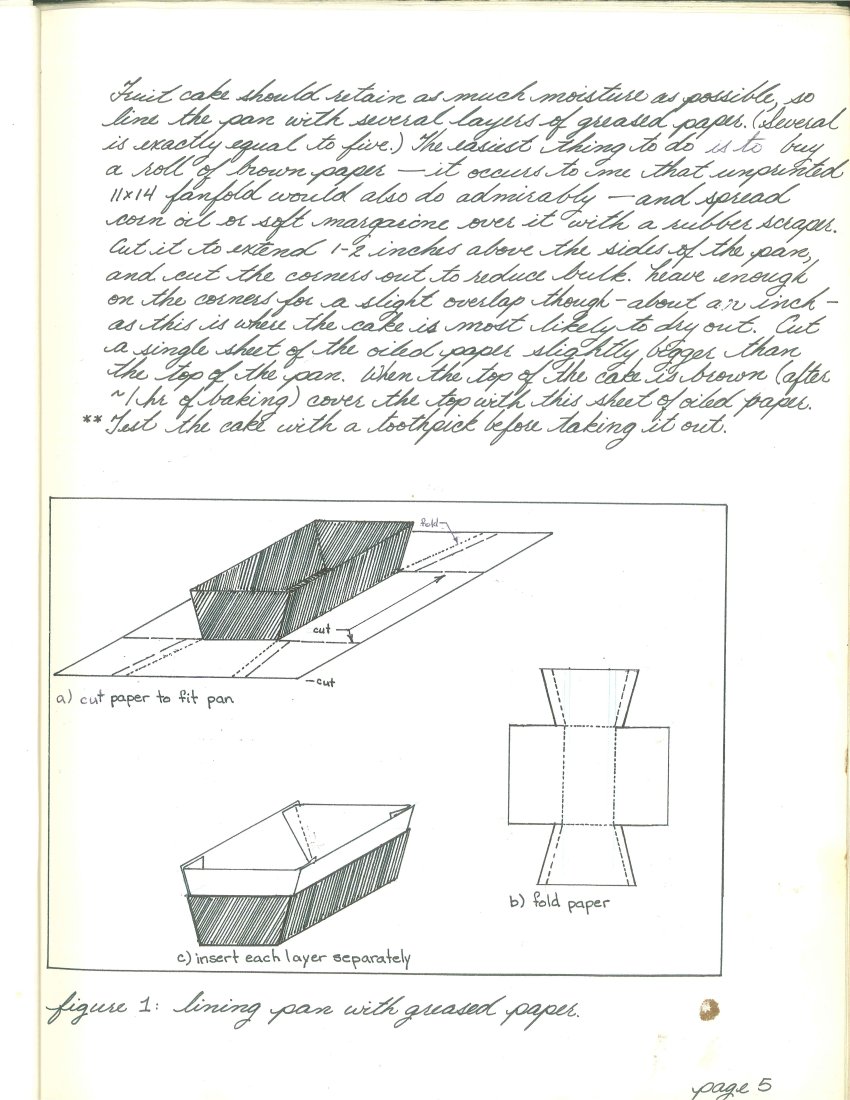 Fruit cake should retain as much moisture as possible, so
line the pan with several layers of greased paper. (Several
is exactly equal to five.) The easiest thing to do is to buy
a roll of brown paper — it occurs to me that unprinted
11x14 fanfold would also do admirably — and spread
corn oil or soft margarine over it with a rubber scraper.
Cut it to extend 1-2 inches above the sides of the pan,
and cut the corners out to reduce bulk. Leave enough
on the corners for a slight overlap though - about an inch -
as this is where the cake is most likely to dry out. Cut
a single sheet of the oiled paper slightly bigger than
the top of the pan. When the top of the cake is brown (after
~1 hr of baking) cover the top with this sheet of oiled paper.
** Test the cake with a toothpick before taking it out.
fold
cut
cut
a) cut paper to fit pan
b) fold paper
c) insert each layer separately
figure 1: lining pan with greased paper.
page 5